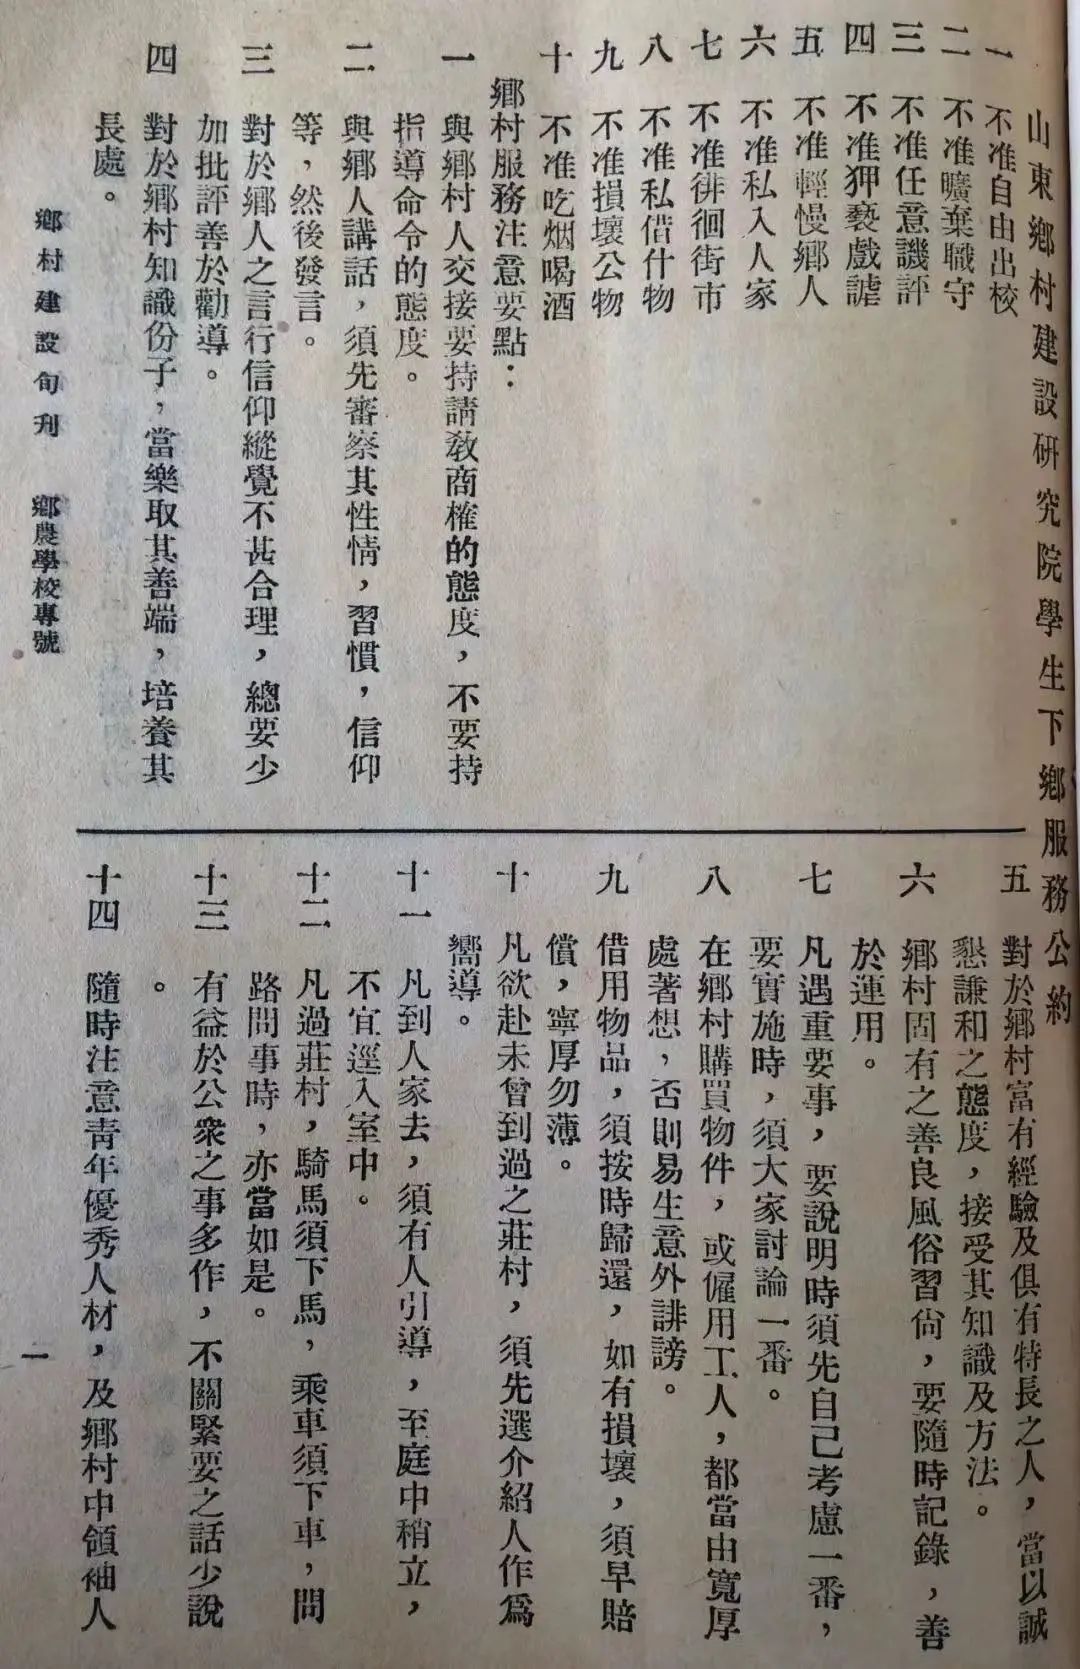 山東鄉村建設研究院學生下鄉服務公約
一 不准自由出校
二 不准曠棄職守
三 不准任意譏評
四 不准狎褻戲謔
五 不准輕慢鄉人
六 不准私入人家
七 不准徘徊街市
八 不准私借什物
九 不准損壞公物
十 不准吃烟喝酒
鄉村服務注意要點：
一 與鄉村人交接要持請教商榷的態度，不要持
指導命令的態度。
二 與鄉人講話，須先審察其性情，習慣，信仰
等，然後發言。
三 對於鄉人之言行信仰縱覺不甚合理，總要少
加批評善於勸導。
四 對於鄉村知識份子，當樂取其善端，培養其
長處。
五 對於鄉村富有經驗及俱有特長之人，當以誠
懇謙和之態度，接受其知識及方法。
六 鄉村固有之善良風俗習尙，要隨時記錄，善
於運用。
七 凡遇重要事，要說明時須先自己考慮一番，
要實施時，須大家討論一番。
八 在鄉村購買物件，或僱用工人，都當由寬厚
處著想，否則易生意外誹謗。
九 借用物品，須按時歸還，如有損壞，須早賠
償，寧厚勿薄。
十 凡欲赴未曾到過之莊村，須先選介紹人作爲
嚮導。
十一 凡到人家去，須有人引導，至庭中稍立，
不宜逕入室中。
十二 凡過莊村，騎馬須下馬，乘車須下車，問
路問事時，亦當如是。
十三 有益於公衆之事多作，不關緊要之話少說
。
十四 隨時注意靑年優秀人材，及鄉村中領袖人
鄉村建設旬刋 鄉農學校專號
一